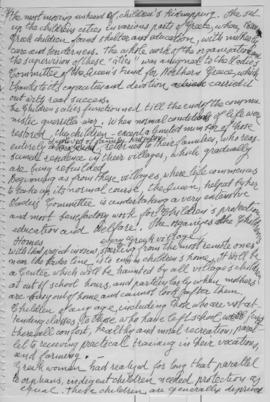 the most moving unheard of children's kidnapping. The set
up the children cities in various parts of Greece, where the
greek children found shelter and education, with motherly
care and tenderness. The whole work of the organisation and
the supervision of these "cities" was assigned to the Ladies'
Committee of the Queen's Fund for Northern Greece, which
thanks to its capacities and devotion, carried it
out with real success.
The Children cities functioned till the end of the commu-
nistic guerilla war. When normal conditions of life were
restored, the children - except a limited number of those
entirely deprived of family - returned to their families, who reas-
sumed residence in their villages, which gradually
are being rebuilt.
Beginning as from these villages where life commences
to take up its normal course, the Queen, helped by her
Ladies' Committee is undertaking a very enlarged
and most benefactory work for Children's protection
education and welfare. The organizes the Children
Homes in every greek village.
With that project in view, starting from the most remote ones
near the border line, is to open children's home. It will be
a Center which will be haunted by all village's children
at out of school hours, and particularly when mothers
are busy out of home and cannot look after them.
Children of any age, including those who are not at-
tending classes, or those who have left school will find
there all comfort, healthy and moral recreation, paral-
lel to receiving practical training in their vocation,
and farming.
Greek women had realized for long that parallel
to orphans, indigent children needed protection as
equal. These children are generally deprived